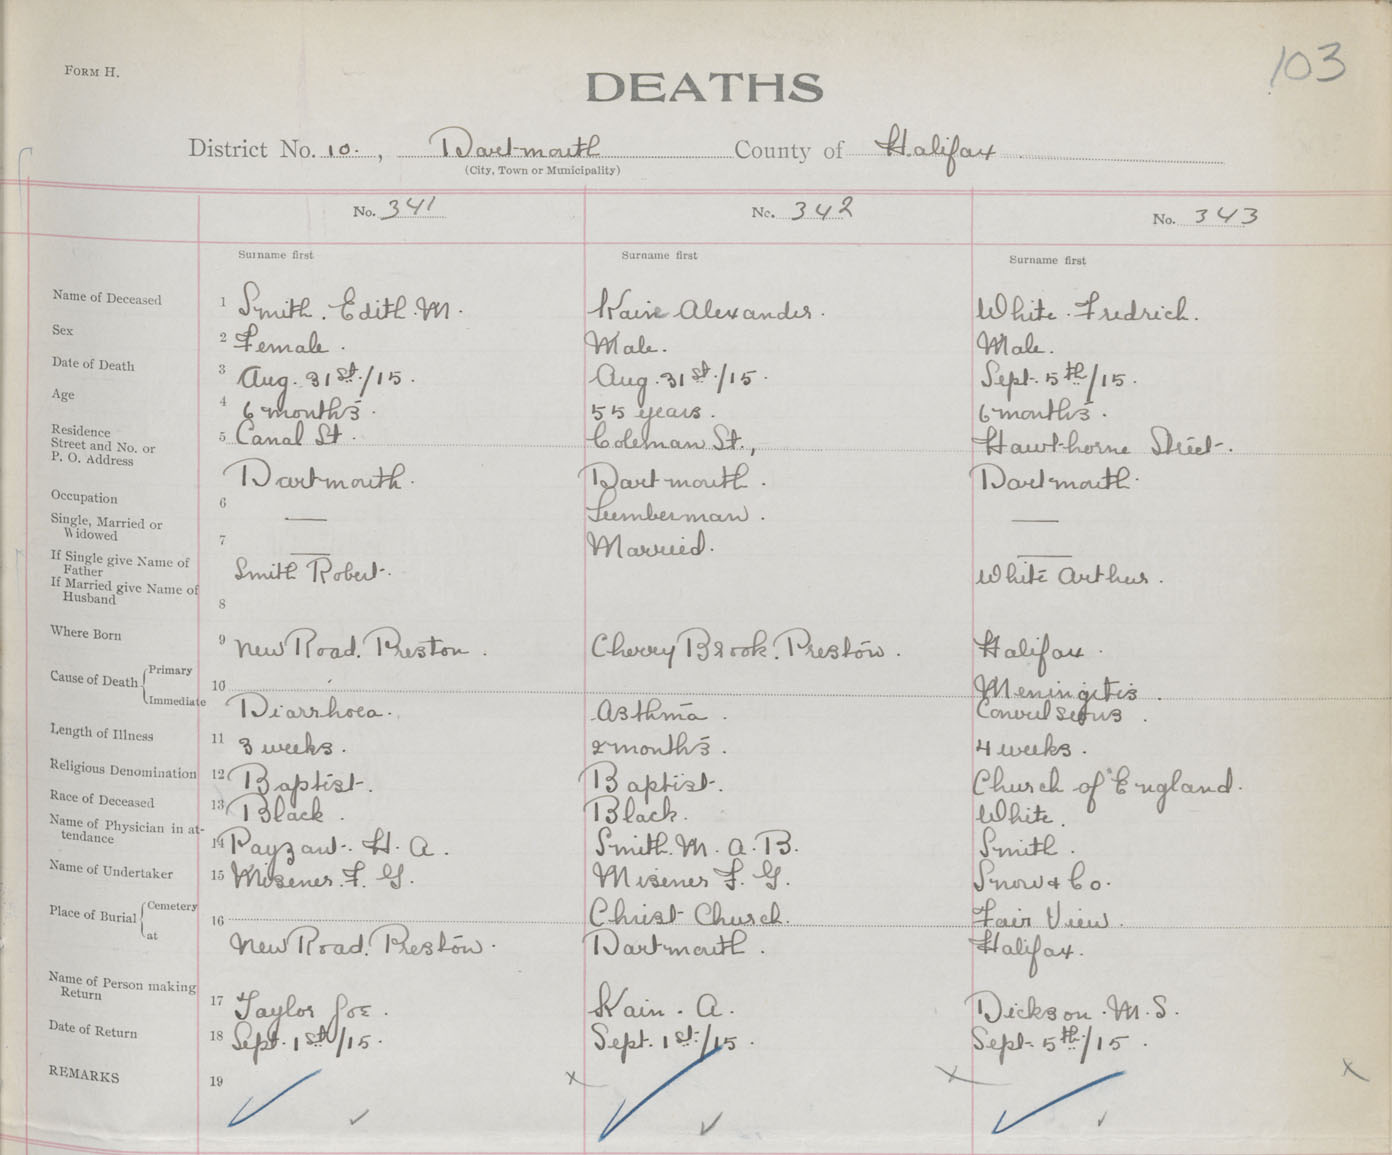 103
FORM H.
DEATHS
District No. 10. , Dartmouth County of Halifax
(City, Town or Municipality)
No. 341 No. 342 No. 343
Surname first Surname first Surname first
Name of Deceased 1 Smith. Edith. M. Kaine Alexander. White. Fredrich.
Sex 2 Female. Male. Male.
Date of Death 3 Aug. 31st/15. Aug. 31st/15. Sept. 5th/15.
Age 4 6 months. 55 years. 6 months.
Residence
Street and No. or
P. O. Address 5 Canal St. Coleman St., Hawthorne Street.
Dartmouth. Dartmouth. Dartmouth.
Occupation 6 — Lumberman. —
Single, Married or
Widowed 7 — Married. —
If Single give Name of
Father Smith Robert. White Arthur.
If Married give Name of
Husband 8
Where Born 9 New Road. Preston. Cherry Brook. Preston. Halifax.
Cause of Death { Primary 10 Meningitis.
Immediate Diarrhoea. Asthma. Convulsions.
Length of Illness 11 3 weeks. 2 months. 4 weeks.
Religious Denomination 12 Baptist. Baptist. Church of England.
Race of Deceased 13 Black. Black. White.
Name of Physician in at-
tendance 14 Payzant. H. A. Smith. M. A. B. Smith.
Name of Undertaker 15 Misener. F. G. Misener F. G. Snow & Co.
Place of Burial { Cemetery 16 Christ Church. Fair View.
at New Road. Preston. Dartmouth. Halifax.
Name of Person making
Return 17 Taylor Joe. Kain. A. Dickson. M. S.
Date of Return 18 Sept. 1st/15. Sept. 1st/15. Sept. 5th/15.
REMARKS 19